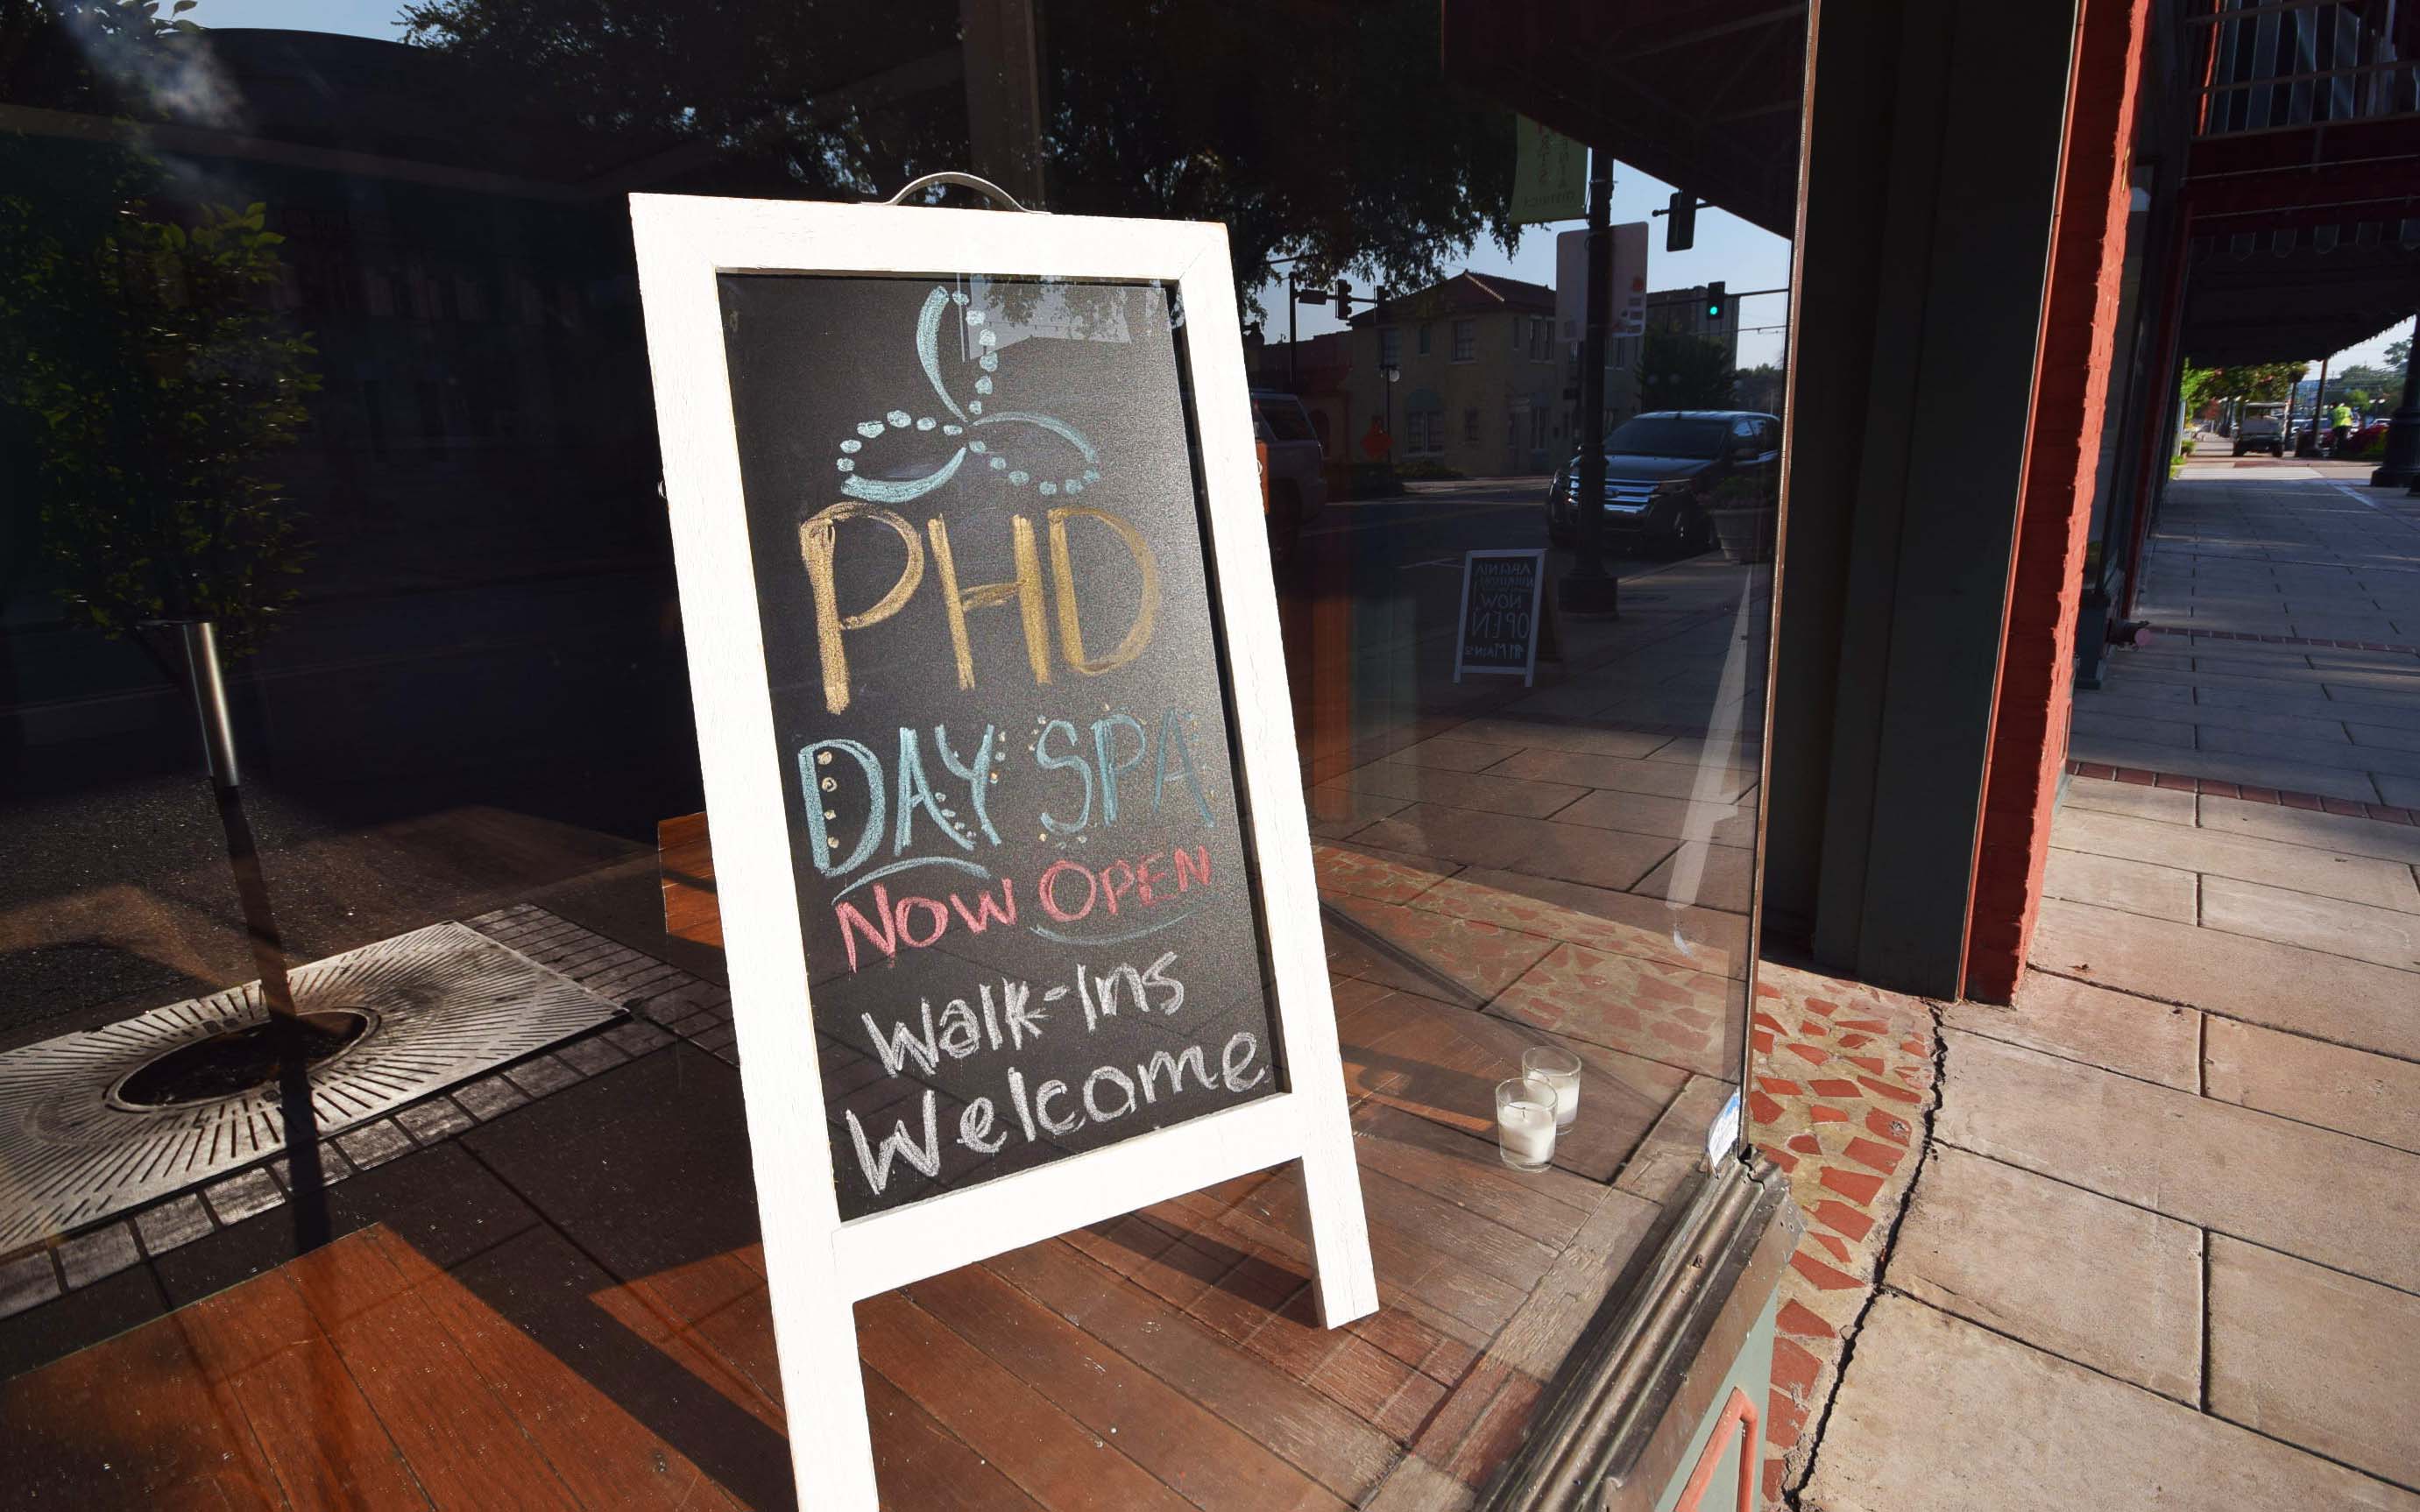 PHD
DAY SPA
NOW OPEN
Walk-Ins
Welcome
NOW
OPEN